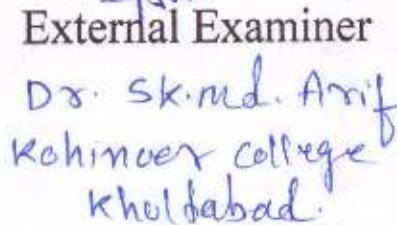 External Examiner
Dr. Sk. Md. Arif
Kohinoor College
Khultabad.